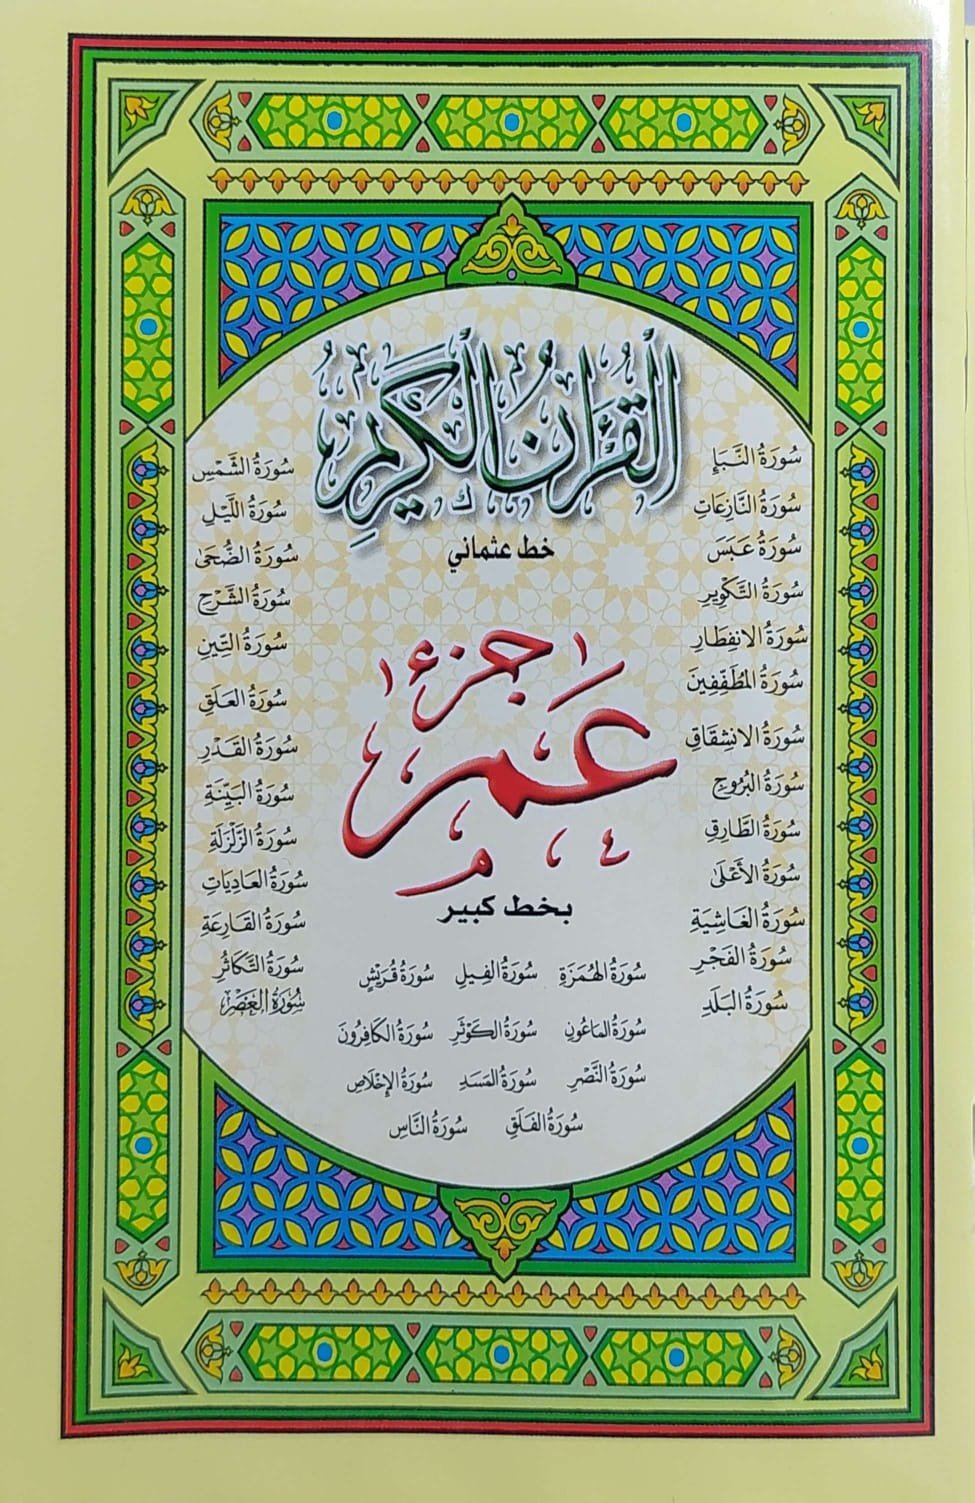 القرآن الكريم
خط عثماني
جزء
عم
بخط كبير
سورة النبإ
سورة النازعات
سورة عبس
سورة التكوير
سورة الانفطار
سورة المطففين
سورة الانشقاق
سورة البروج
سورة الطارق
سورة الأعلى
سورة الغاشية
سورة الفجر
سورة البلد
سورة الشمس
سورة الليل
سورة الضحى
سورة الشرح
سورة التين
سورة العلق
سورة القدر
سورة البينة
سورة الزلزلة
سورة العاديات
سورة القارعة
سورة التكاثر
سورة العصر
سورة الهمزة سورة الفيل سورة قريش
سورة الماعون سورة الكوثر سورة الكافرون
سورة النصر سورة المسد سورة الإخلاص
سورة الفلق سورة الناس